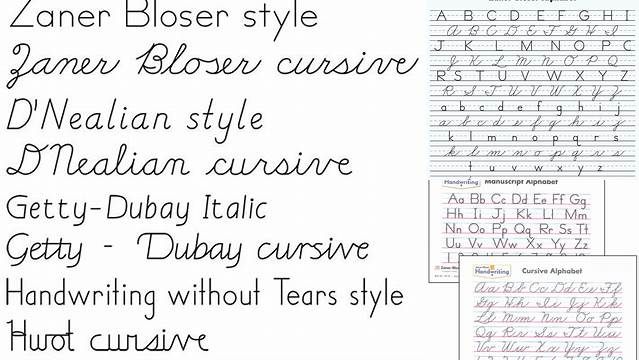 Zaner Bloser style
Zaner Bloser cursive
D'Nealian style
D'Nealian cursive
Getty-Dubay Italic
Getty - Dubay cursive
Handwriting without Tears style
Hwot cursive
A B C D E F G H I
A B C D E F G H I
J K L M N O P Q
J K L M N O P Q
R S T U V W X Y Z
R S T U V W X Y Z
a b c d e f g h i j
a b c d e f g h i j
k l m n o p q r s
k l m n o p q r s
t u v w x y z
t u v w x y z
Handwriting Manuscript Alphabet
Aa Bb Cc Dd Ee Ff Gg
Hh Ii Jj Kk Ll Mm
Nn Oo Pp Qq Rr Ss Tt
Uu Vv Ww Xx Yy Zz
Handwriting Cursive Alphabet
Aa Bb Cc Dd Ee Ff
Gg Hh Ii Jj Kk
Ll Mm Nn Oo Pp
Qq Rr Ss Tt Uu
Vv Ww Xx Yy Zz